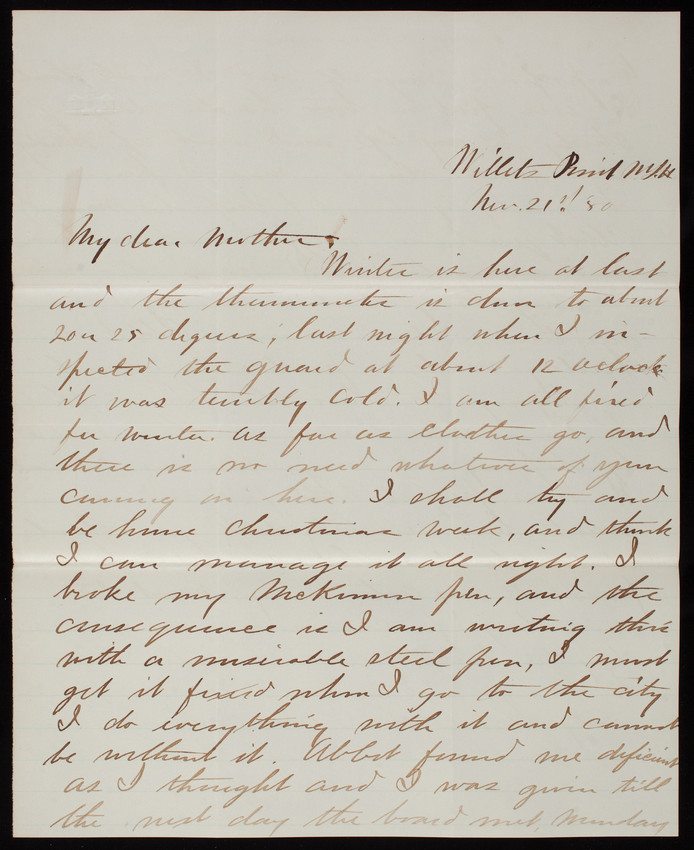 Willets Point N.Y.H
Nov. 21st 80
My dear Mother.
Winter is here at last
and the thermometer is down to about
20 or 25 degrees; last night when I in-
spected the guard at about 12 oclock
it was terribly cold. I am all fixed
for winter. as far as clothes go, and
there is no need whatever of your
coming on here. I shall try and
be home Christmas week, and think
I can manage it all right. I
broke my McKinnon pen, and the
consequence is I am writing this
with a miserable steel pen, I must
get it fixed when I go to the city
I do everything with it and cannot
be without it. Abbot found me deficient
as I thought and I was given till
the next day the board met, Monday